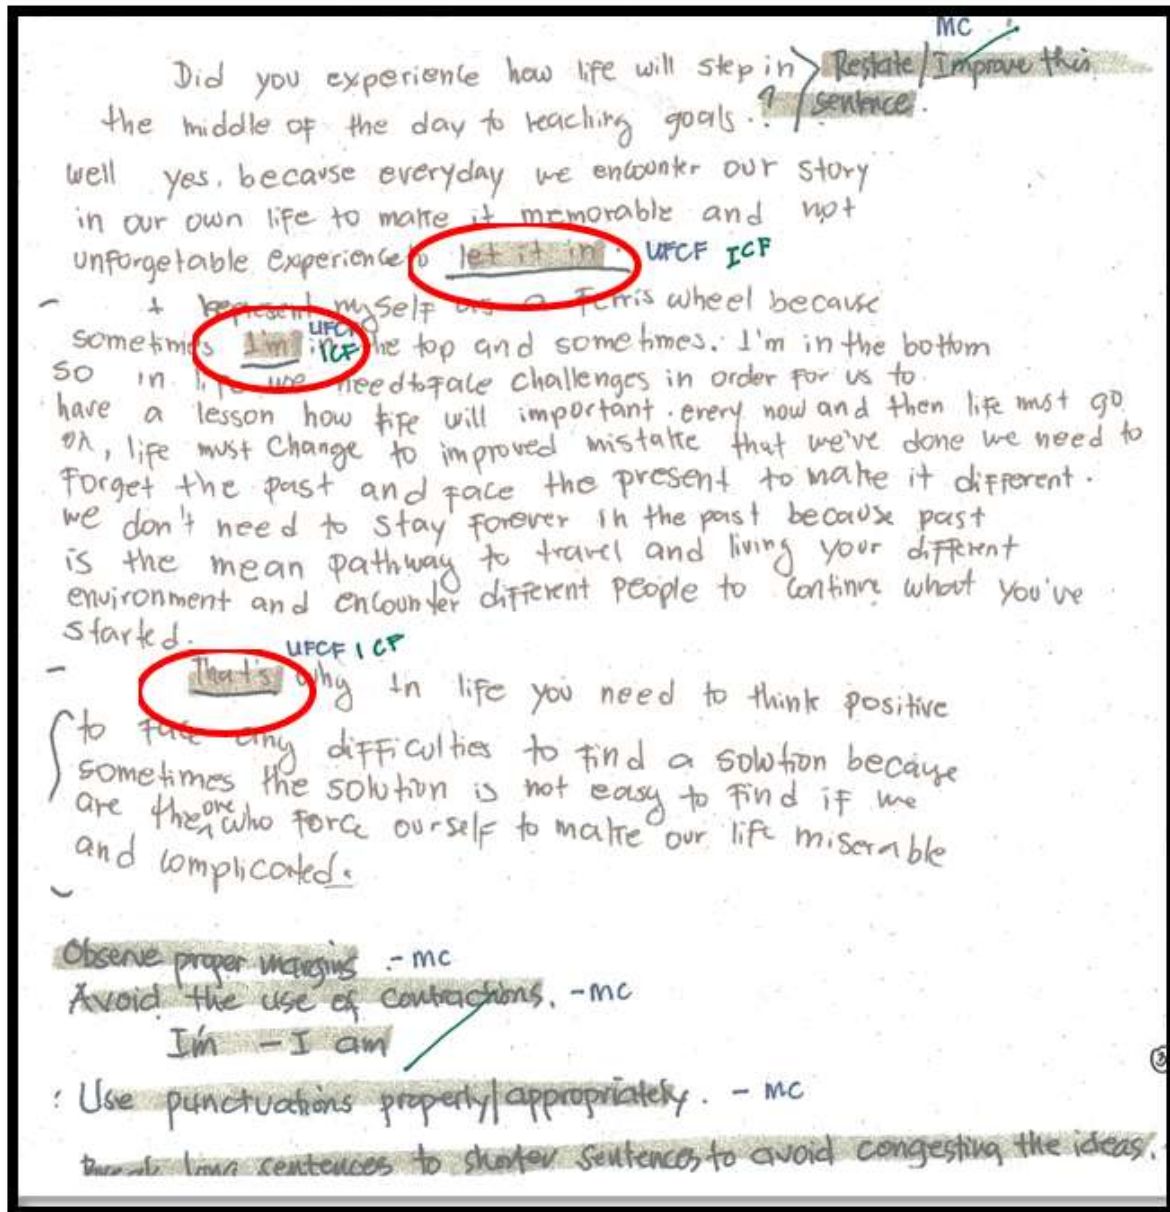 MC
Did you experience how life will step in Restate/Improve this
the middle of the day to reaching goals.? sentence.
well yes. because everyday we encounter our story
in our own life to make it memorable and not
unforgetable experience let it in. UFCF ICF
I Represent myself as a Ferris wheel because
sometimes I'm in the top and sometimes. I'm in the bottom
UFCF
ICF
so in life we need to face challenges in order for us to
have a lesson how life will important. every now and then life must go
on, life must Change to improved mistake that we've done we need to
Forget the past and face the present to make it different.
we don't need to stay forever in the past because past
is the mean pathway to travel and living your different
environment and encounter different people to continue what you've
started.
UFCF ICF
That's why In life you need to think positive
to face any difficulties to find a solution because
sometimes the solution is not easy to find if we
are the one who force ourself to make our life miserable
and complicated.
Observe proper margins. - MC
Avoid the use of contractions. - MC
I'm - I am
3
: Use punctuations properly/appropriately. - MC
long sentences to shorter sentences to avoid congesting the ideas.